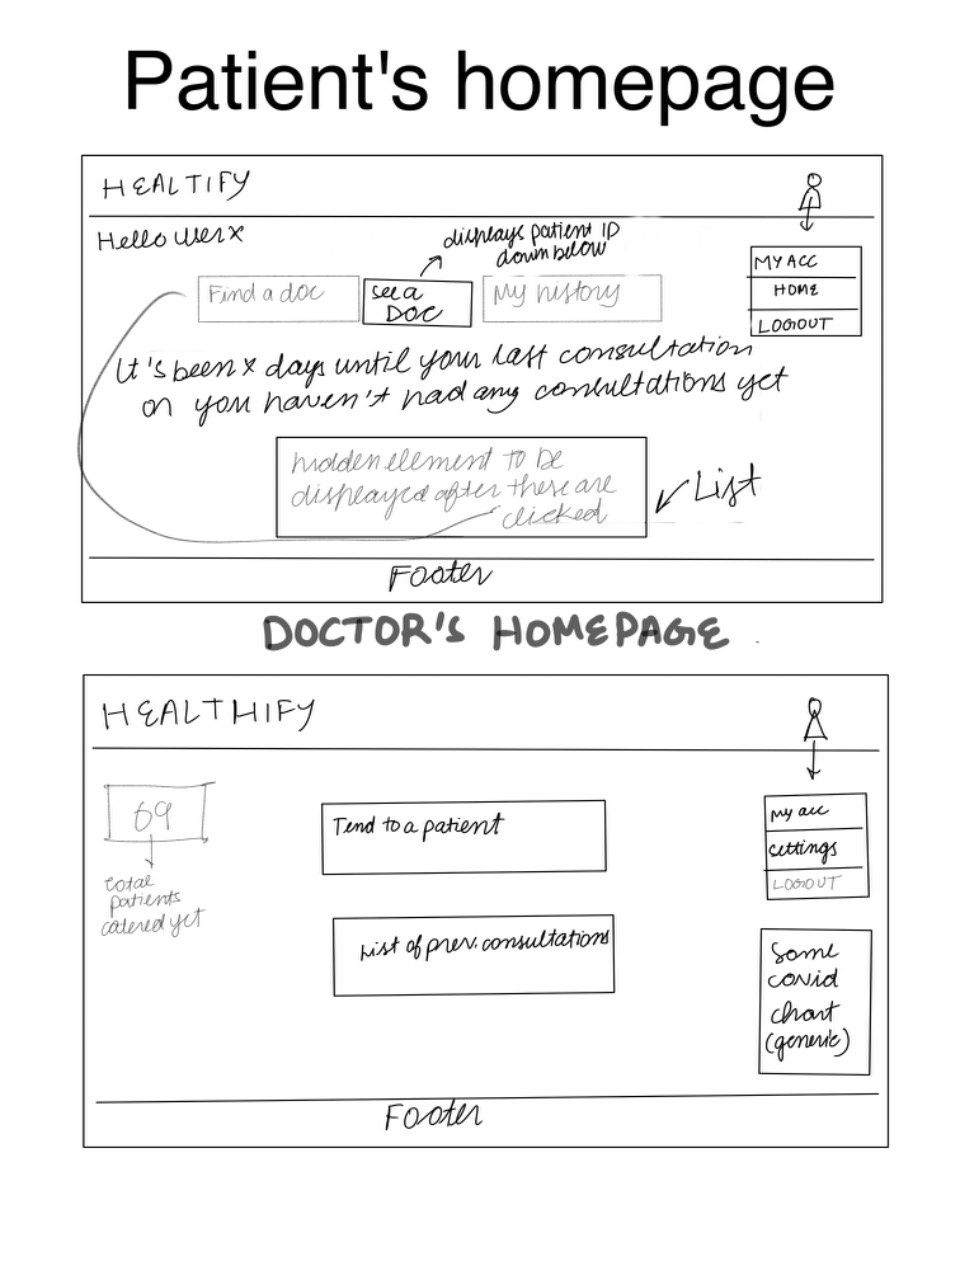 Patient's homepage
HEALTIFY
Hello User x
displays patient ID
down below
Find a doc
see a
DOC
My history
MY ACC
HOME
LOGOUT
It's been x days until your last consultation
or you haven't had any consultations yet
hidden element to be
displayed after these are
clicked
List
Footer
DOCTOR'S HOMEPAGE
HEALTHIFY
69
total
patients
catered yet
Tend to a patient
List of prev. consultations
My acc
settings
LOGOUT
Some
covid
chart
(generic)
Footer